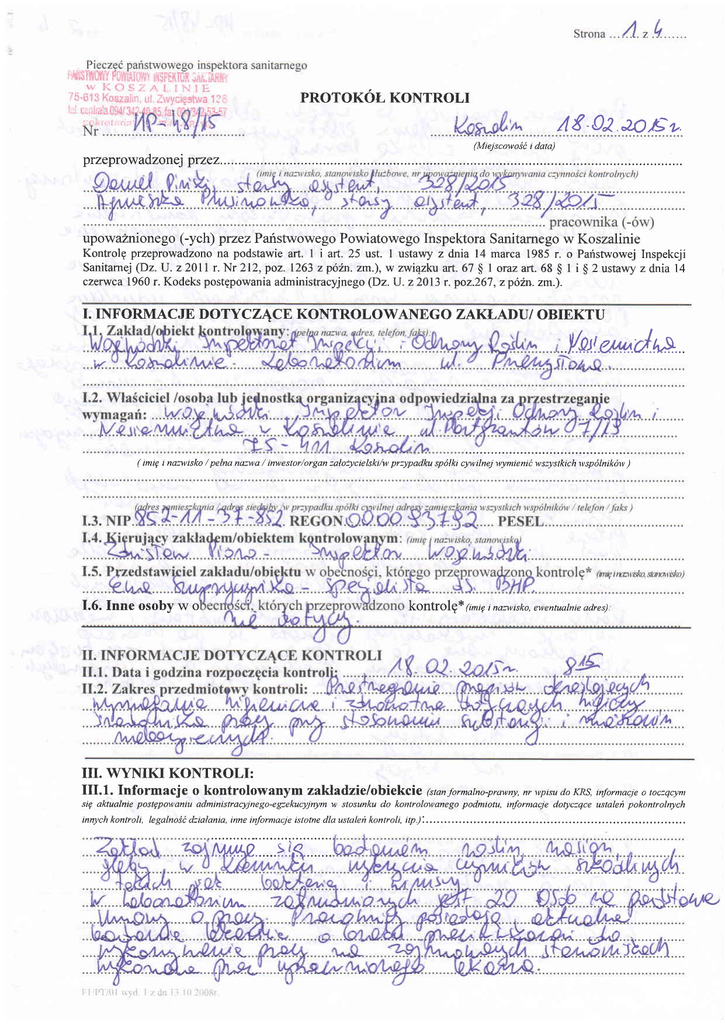 Strona ... 1 z 4 ......
Pieczęć państwowego inspektora sanitarnego
PAŃSTWOWY POWIATOWY INSPEKTOR SANITARNY
W KOSZALINIE
75-613 Koszalin, ul. Zwycięstwa 136
PROTOKÓŁ KONTROLI
Nr HP-48/15 Koszalin 18.02.2015r.
(Miejscowość i data)
przeprowadzonej przez
(imię i nazwisko, stanowisko służbowe, nr upoważnienia do wykonywania czynności kontrolnych)
starszy asystent, 328/2015
Agnieszka starszy asystent, 328/2015
pracownika (-ów)
upoważnionego (-ych) przez Państwowego Powiatowego Inspektora Sanitarnego w Koszalinie
Kontrolę przeprowadzono na podstawie art. 1 i art. 25 ust. 1 ustawy z dnia 14 marca 1985 r. o Państwowej Inspekcji
Sanitarnej (Dz. U. z 2011 r. Nr 212, poz. 1263 z późn. zm.), w związku art. 67 § 1 oraz art. 68 § 1 i § 2 ustawy z dnia 14
czerwca 1960 r. Kodeks postępowania administracyjnego (Dz. U. z 2013 r. poz.267, z późn. zm.).
I. INFORMACJE DOTYCZĄCE KONTROLOWANEGO ZAKŁADU/ OBIEKTU
I.1. Zakład/obiekt kontrolowany: (pełna nazwa, adres, telefon, faks)
Wojewódzki Inspektorat Inspekcji Ochrony Roślin i Nasiennictwa
w Koszalinie - Laboratorium ul.
I.2. Właściciel /osoba lub jednostka organizacyjna odpowiedzialna za przestrzeganie
wymagań: Wojewódzki Inspektor Inspekcji Ochrony Roślin i
Nasiennictwa w Koszalinie ul. Partyzantów 7/13
75-411 Koszalin
( imię i nazwisko / pełna nazwa / inwestor/organ założycielski/w przypadku spółki cywilnej wymienić wszystkich wspólników )
(adres zamieszkania / adres siedziby /w przypadku spółki cywilnej adresy zamieszkania wszystkich wspólników / telefon / faks )
I.3. NIP 852-11-37-852 REGON 000093792 PESEL
I.4. Kierujący zakładem/obiektem kontrolowanym: (imię i nazwisko, stanowisko)
Zdzisław - Inspektor Wojewódzki
I.5. Przedstawiciel zakładu/obiektu w obecności, którego przeprowadzono kontrolę* (imię i nazwisko, stanowisko)
Ewa - specjalista ds. BHP
I.6. Inne osoby w obecności, których przeprowadzono kontrolę* (imię i nazwisko, ewentualnie adres):
nie dotyczy
II. INFORMACJE DOTYCZĄCE KONTROLI
II.1. Data i godzina rozpoczęcia kontroli: 18.02.2015r. 815
II.2. Zakres przedmiotowy kontroli: Przestrzeganie przepisów określających
wymagania higieniczne i zdrowotne dotyczących higieny
środowiska pracy przy stosowaniu substancji i mieszanin
niebezpiecznych.
III. WYNIKI KONTROLI:
III.1. Informacje o kontrolowanym zakładzie/obiekcie (stan formalno-prawny, nr wpisu do KRS, informacje o toczącym
się aktualnie postępowaniu administracyjnego-egzekucyjnym w stosunku do kontrolowanego podmiotu, informacje dotyczące ustaleń pokontrolnych
innych kontroli, legalność działania, inne informacje istotne dla ustaleń kontroli, itp.):
Zakład zajmuje się badaniem roślin, nasion,
gleby w kierunku wykrycia czynników szkodliwych
takich jak bakterie i wirusy.
W laboratorium zatrudnionych jest 20 osób na podstawie
umowy o pracę. Pracownicy posiadają aktualne
badania lekarskie o braku przeciwwskazań do
wykonywania pracy na zajmowanych stanowiskach
wykonane przez uprawnionego lekarza.
F1/PT/01 wyd. I z dn 13.10.2008r.